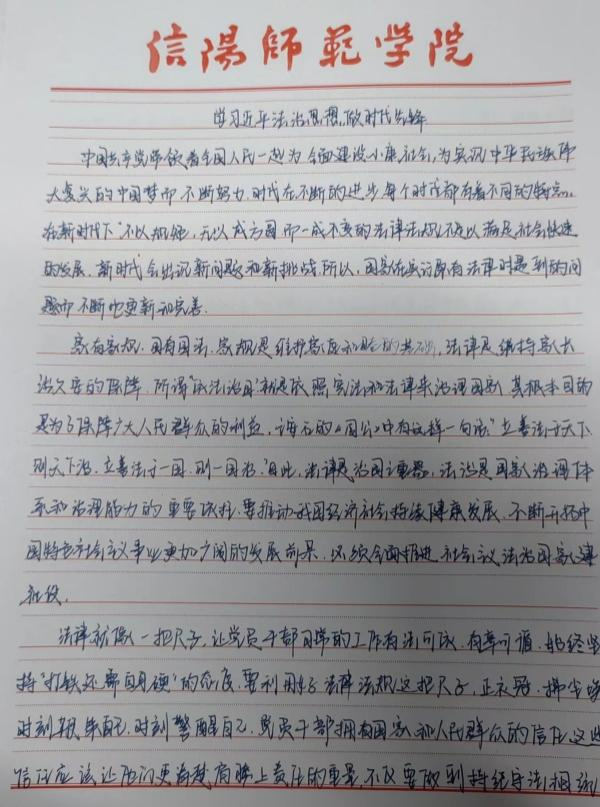 信陽師範学院
学习近平法治思想，做时代先锋
中国共产党带领着全国人民一起为全面建设小康社会，为实现中华民族伟
大复兴的中国梦而不断努力，时代在不断的进步每个时代都有着不同的特点。
在新时代下“不以规矩，无以成方圆”而一成不变的法律法规不足以满足社会快速
的发展，新时代会出现新问题和新挑战，所以，国家在实行原有法律时遇到的问
题而不断地更新和完善。
家有家规，国有国法，家规是维护家庭和睦的基础，法律是维持家长
治久安的保障，所谓“依法治国”就是依照宪法和法律来治理国家，其根本目的
是为了保障广大人民群众的利益，王安石的《周公》中有这样一句话“立善法于天下
则天下治，立善法于一国，则一国治。”因此，法律是治国之重器，法治是国家治理体
系和治理能力的重要依托，要推动我国经济社会持续健康发展，不断开拓中
国特色社会主义事业更加广阔的发展前景，必须全面推进社会主义法治国家建
设。
法律就像一把尺子，让党员干部日常的工作有法可依，有章可循，始终坚
持“打铁还需自身硬”的态度，要利用好法律法规这把尺子，正衣冠，拂尘埃
时刻鞭策自己，时刻警醒自己，党员干部拥有国家和人民群众的信任，这些
信任应该让他们更清楚肩膀上责任的重量，不仅要做到持纪守法相